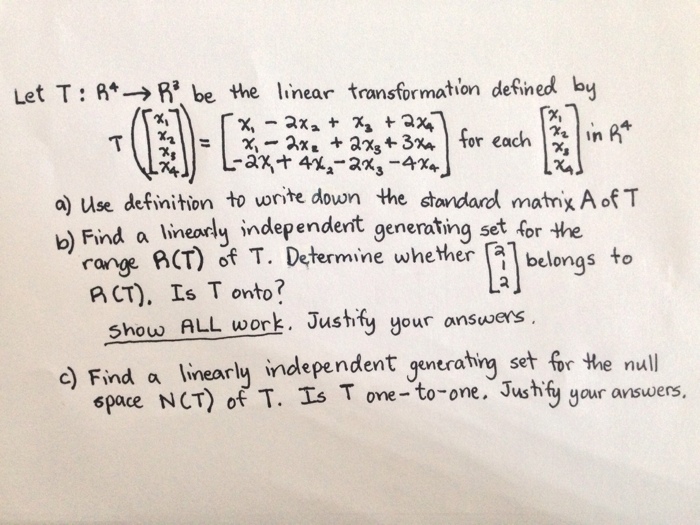 Let T : R⁴ → R³ be the linear transformation defined by
T([x₁ x₂ x₃ x₄]) = [x₁ - 2x₂ + x₃ + 2x₄
x₁ - 2x₂ + 2x₃ + 3x₄
-2x₁ + 4x₂ - 2x₃ - 4x₄] for each [x₁ x₂ x₃ x₄] in R⁴
a) Use definition to write down the standard matrix A of T
b) Find a linearly independent generating set for the
range R(T) of T. Determine whether [2 1 2] belongs to
R(T). Is T onto?
Show ALL work. Justify your answers.
c) Find a linearly independent generating set for the null
space N(T) of T. Is T one-to-one. Justify your answers.